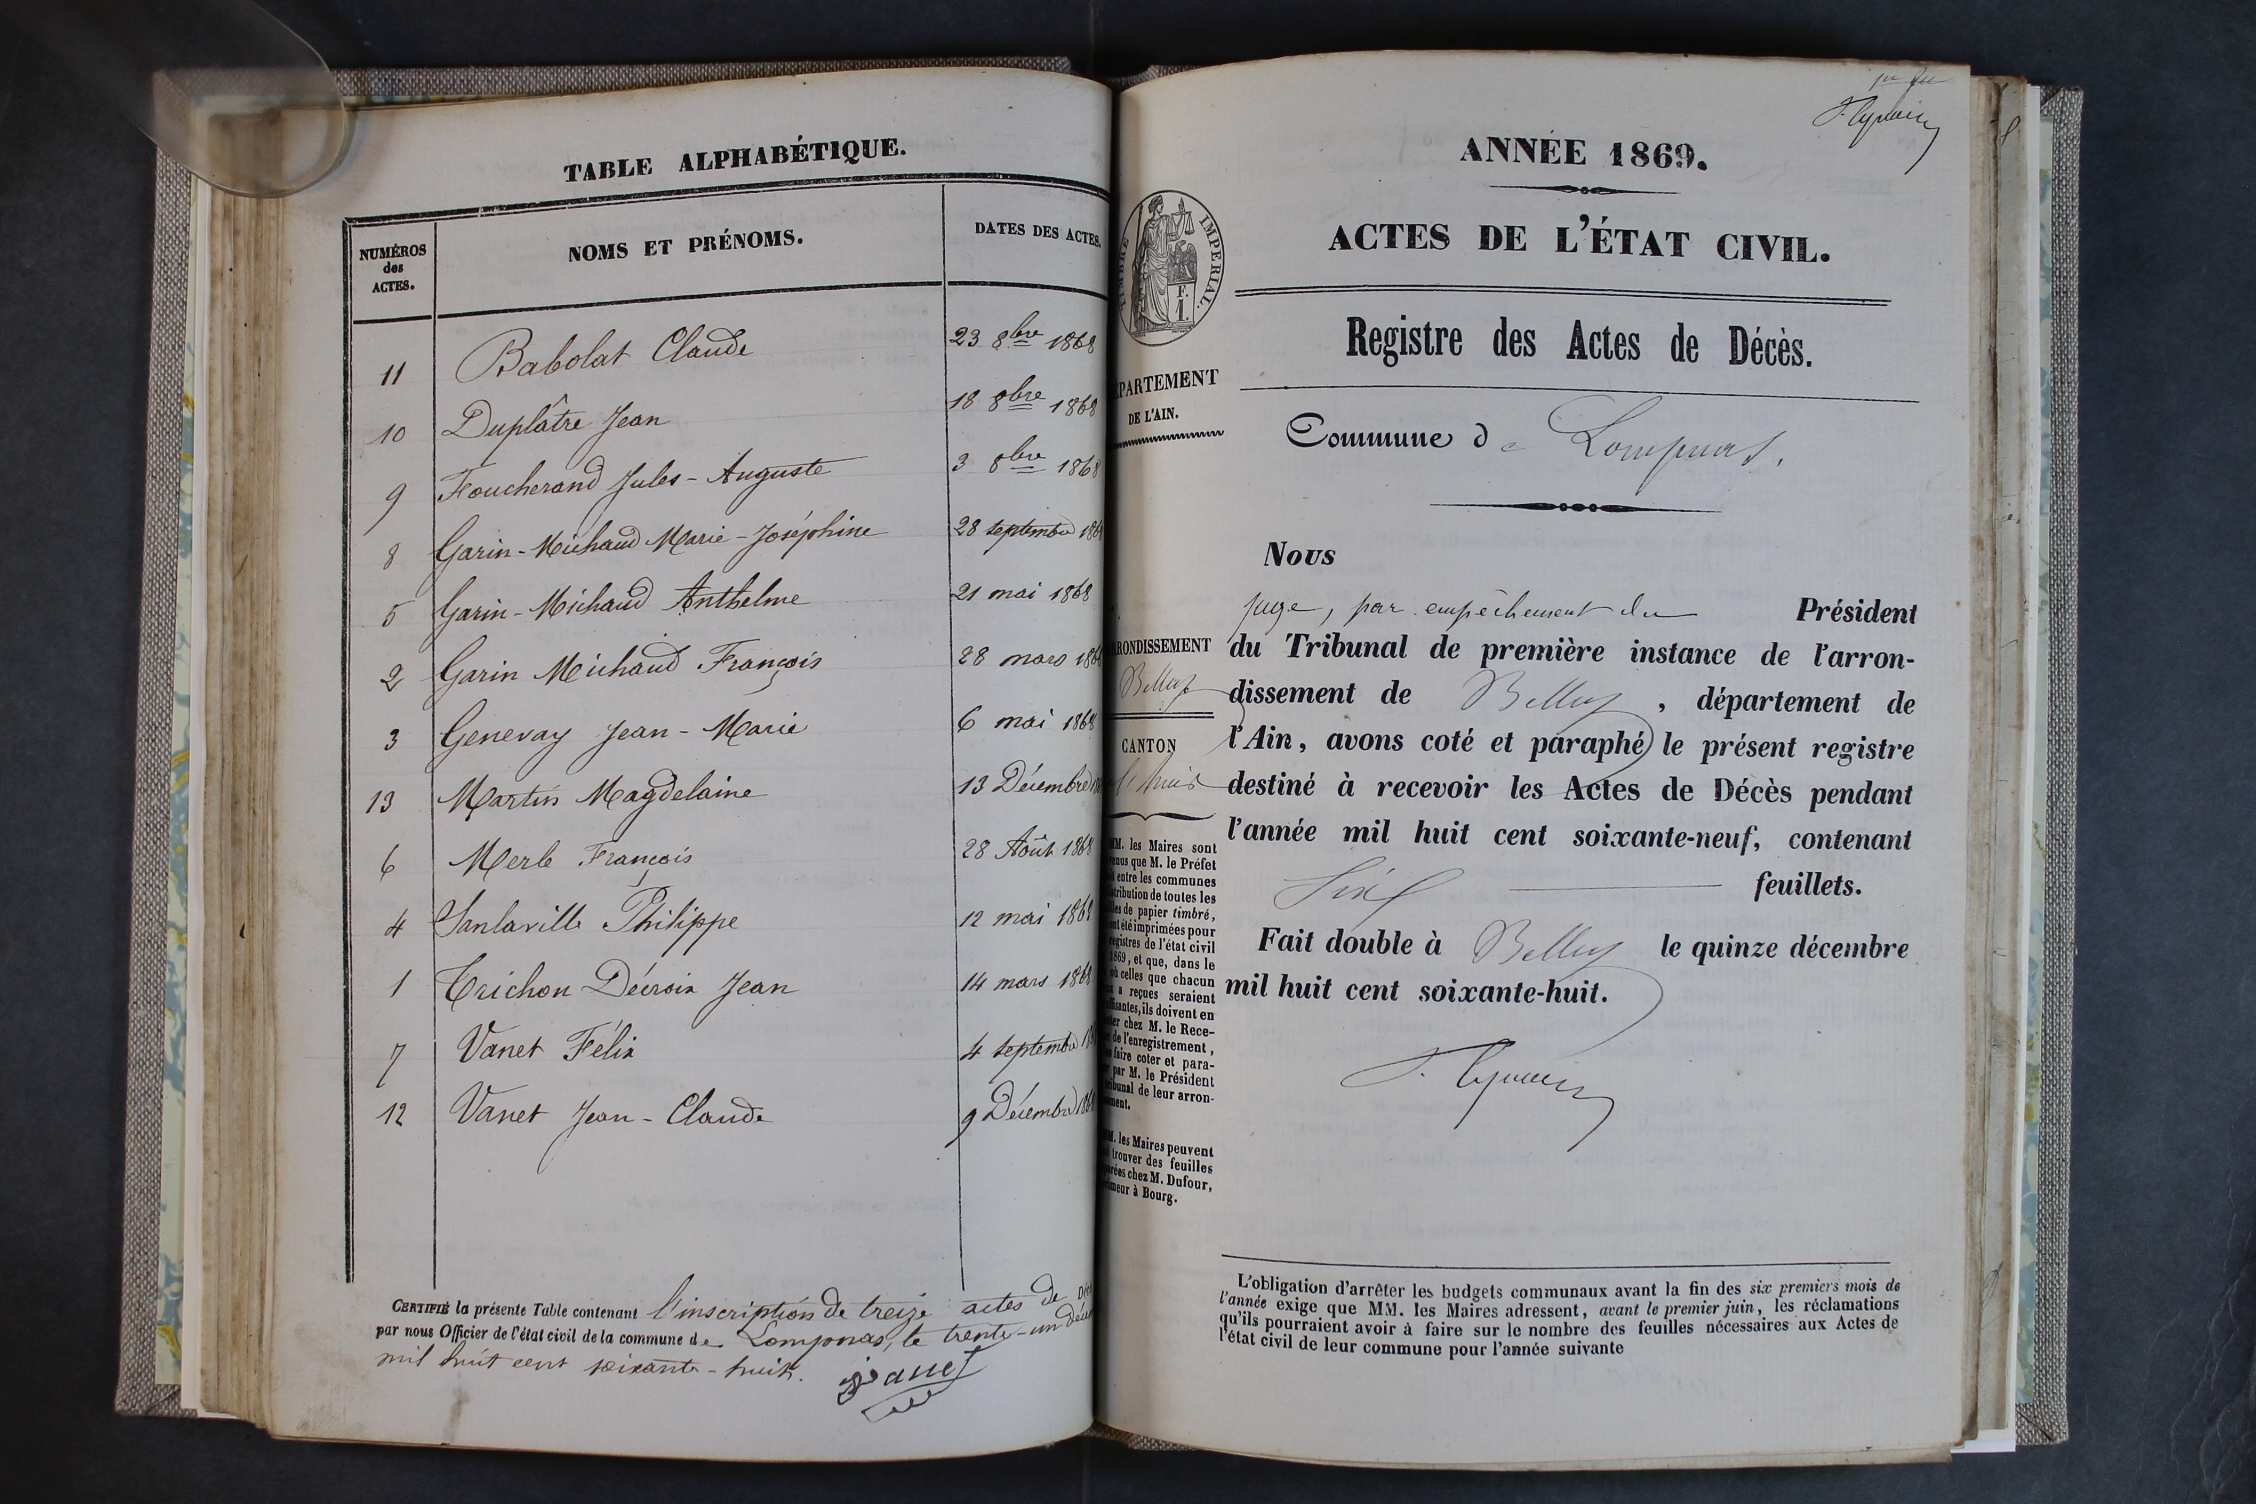 TABLE ALPHABÉTIQUE.
NUMÉROS des ACTES.
NOMS ET PRÉNOMS.
DATES DES ACTES.
11 Babolat Claude 23 8bre 1868
10 Duplâtre Jean 18 8bre 1868
9 Foucherand Jules-Auguste 3 8bre 1868
8 Garin-Michaud Marie-Joséphine 28 septembre 1868
5 Garin-Michaud Anthelme 21 mai 1868
2 Garin Michaud François 28 mars 1868
3 Genevay Jean-Marie 6 mai 1868
13 Martin Magdelaine 13 Décembre
6 Merle François 28 Août 1868
4 Sanlaville Philippe 12 mai 1868
1 Trichon Décroix Jean 14 mars 1868
7 Vanet Félix 4 septembre
12 Vanet Jean-Claude 9 Décembre 1868
CERTIFIÉ la présente Table contenant l'inscription de treize actes de
par nous Officier de l'état civil de la commune de Lompnas, le trente-un
mil huit cent soixante-huit.
ANNÉE 1869.
ACTES DE L'ÉTAT CIVIL.
TIMBRE IMPERIAL.
F.
1.
Registre des Actes de Décès.
PARTEMENT
DE L'AIN.
Commune de Lompnas.
Nous
juge, par empêchement du Président
RONDISSEMENT
Belley
CANTON
du Tribunal de première instance de l'arron-
dissement de Belley, département de
l'Ain, avons coté et paraphé le présent registre
destiné à recevoir les Actes de Décès pendant
l'année mil huit cent soixante-neuf, contenant
feuillets.
Fait double à Belley le quinze décembre
mil huit cent soixante-huit.
MM. les Maires sont
que M. le Préfet
entre les communes
de toutes les
de papier timbré,
été imprimées pour
de l'état civil
1869, et que, dans le
où celles que chacun
a reçues seraient
ils doivent en
chez M. le Rece-
de l'enregistrement,
faire coter et para-
par M. le Président
de leur arron-
MM. les Maires peuvent
trouver des feuilles
chez M. Dufour,
à Bourg.
L'obligation d'arrêter les budgets communaux avant la fin des six premiers mois de
l'année exige que MM. les Maires adressent, avant le premier juin, les réclamations
qu'ils pourraient avoir à faire sur le nombre des feuilles nécessaires aux Actes de
l'état civil de leur commune pour l'année suivante